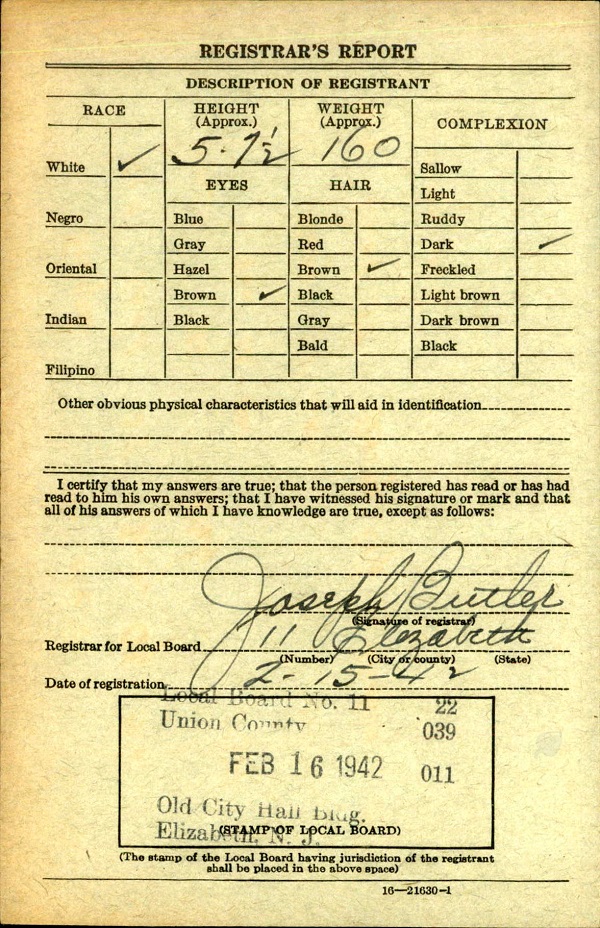 REGISTRAR'S REPORT
DESCRIPTION OF REGISTRANT
RACE
HEIGHT
(Approx.)
WEIGHT
(Approx.)
COMPLEXION
5-7½
160
White ✓
Negro
Oriental
Indian
Filipino
EYES
Blue
Gray
Hazel
Brown ✓
Black
HAIR
Blonde
Red
Brown ✓
Black
Gray
Bald
Sallow
Light
Ruddy
Dark ✓
Freckled
Light brown
Dark brown
Black
Other obvious physical characteristics that will aid in identification
I certify that my answers are true; that the person registered has read or has had
read to him his own answers; that I have witnessed his signature or mark and that
all of his answers of which I have knowledge are true, except as follows:
Joseph Butler
(Signature of registrar)
Registrar for Local Board 11 Elizabeth
(Number) (City or county) (State)
Date of registration 2-15-42
Local Board No. 11 22
Union County 039
FEB 16 1942 011
Old City Hall Bldg.
Elizabeth, N. J.
(STAMP OF LOCAL BOARD)
(The stamp of the Local Board having jurisdiction of the registrant
shall be placed in the above space)
16—21630-1